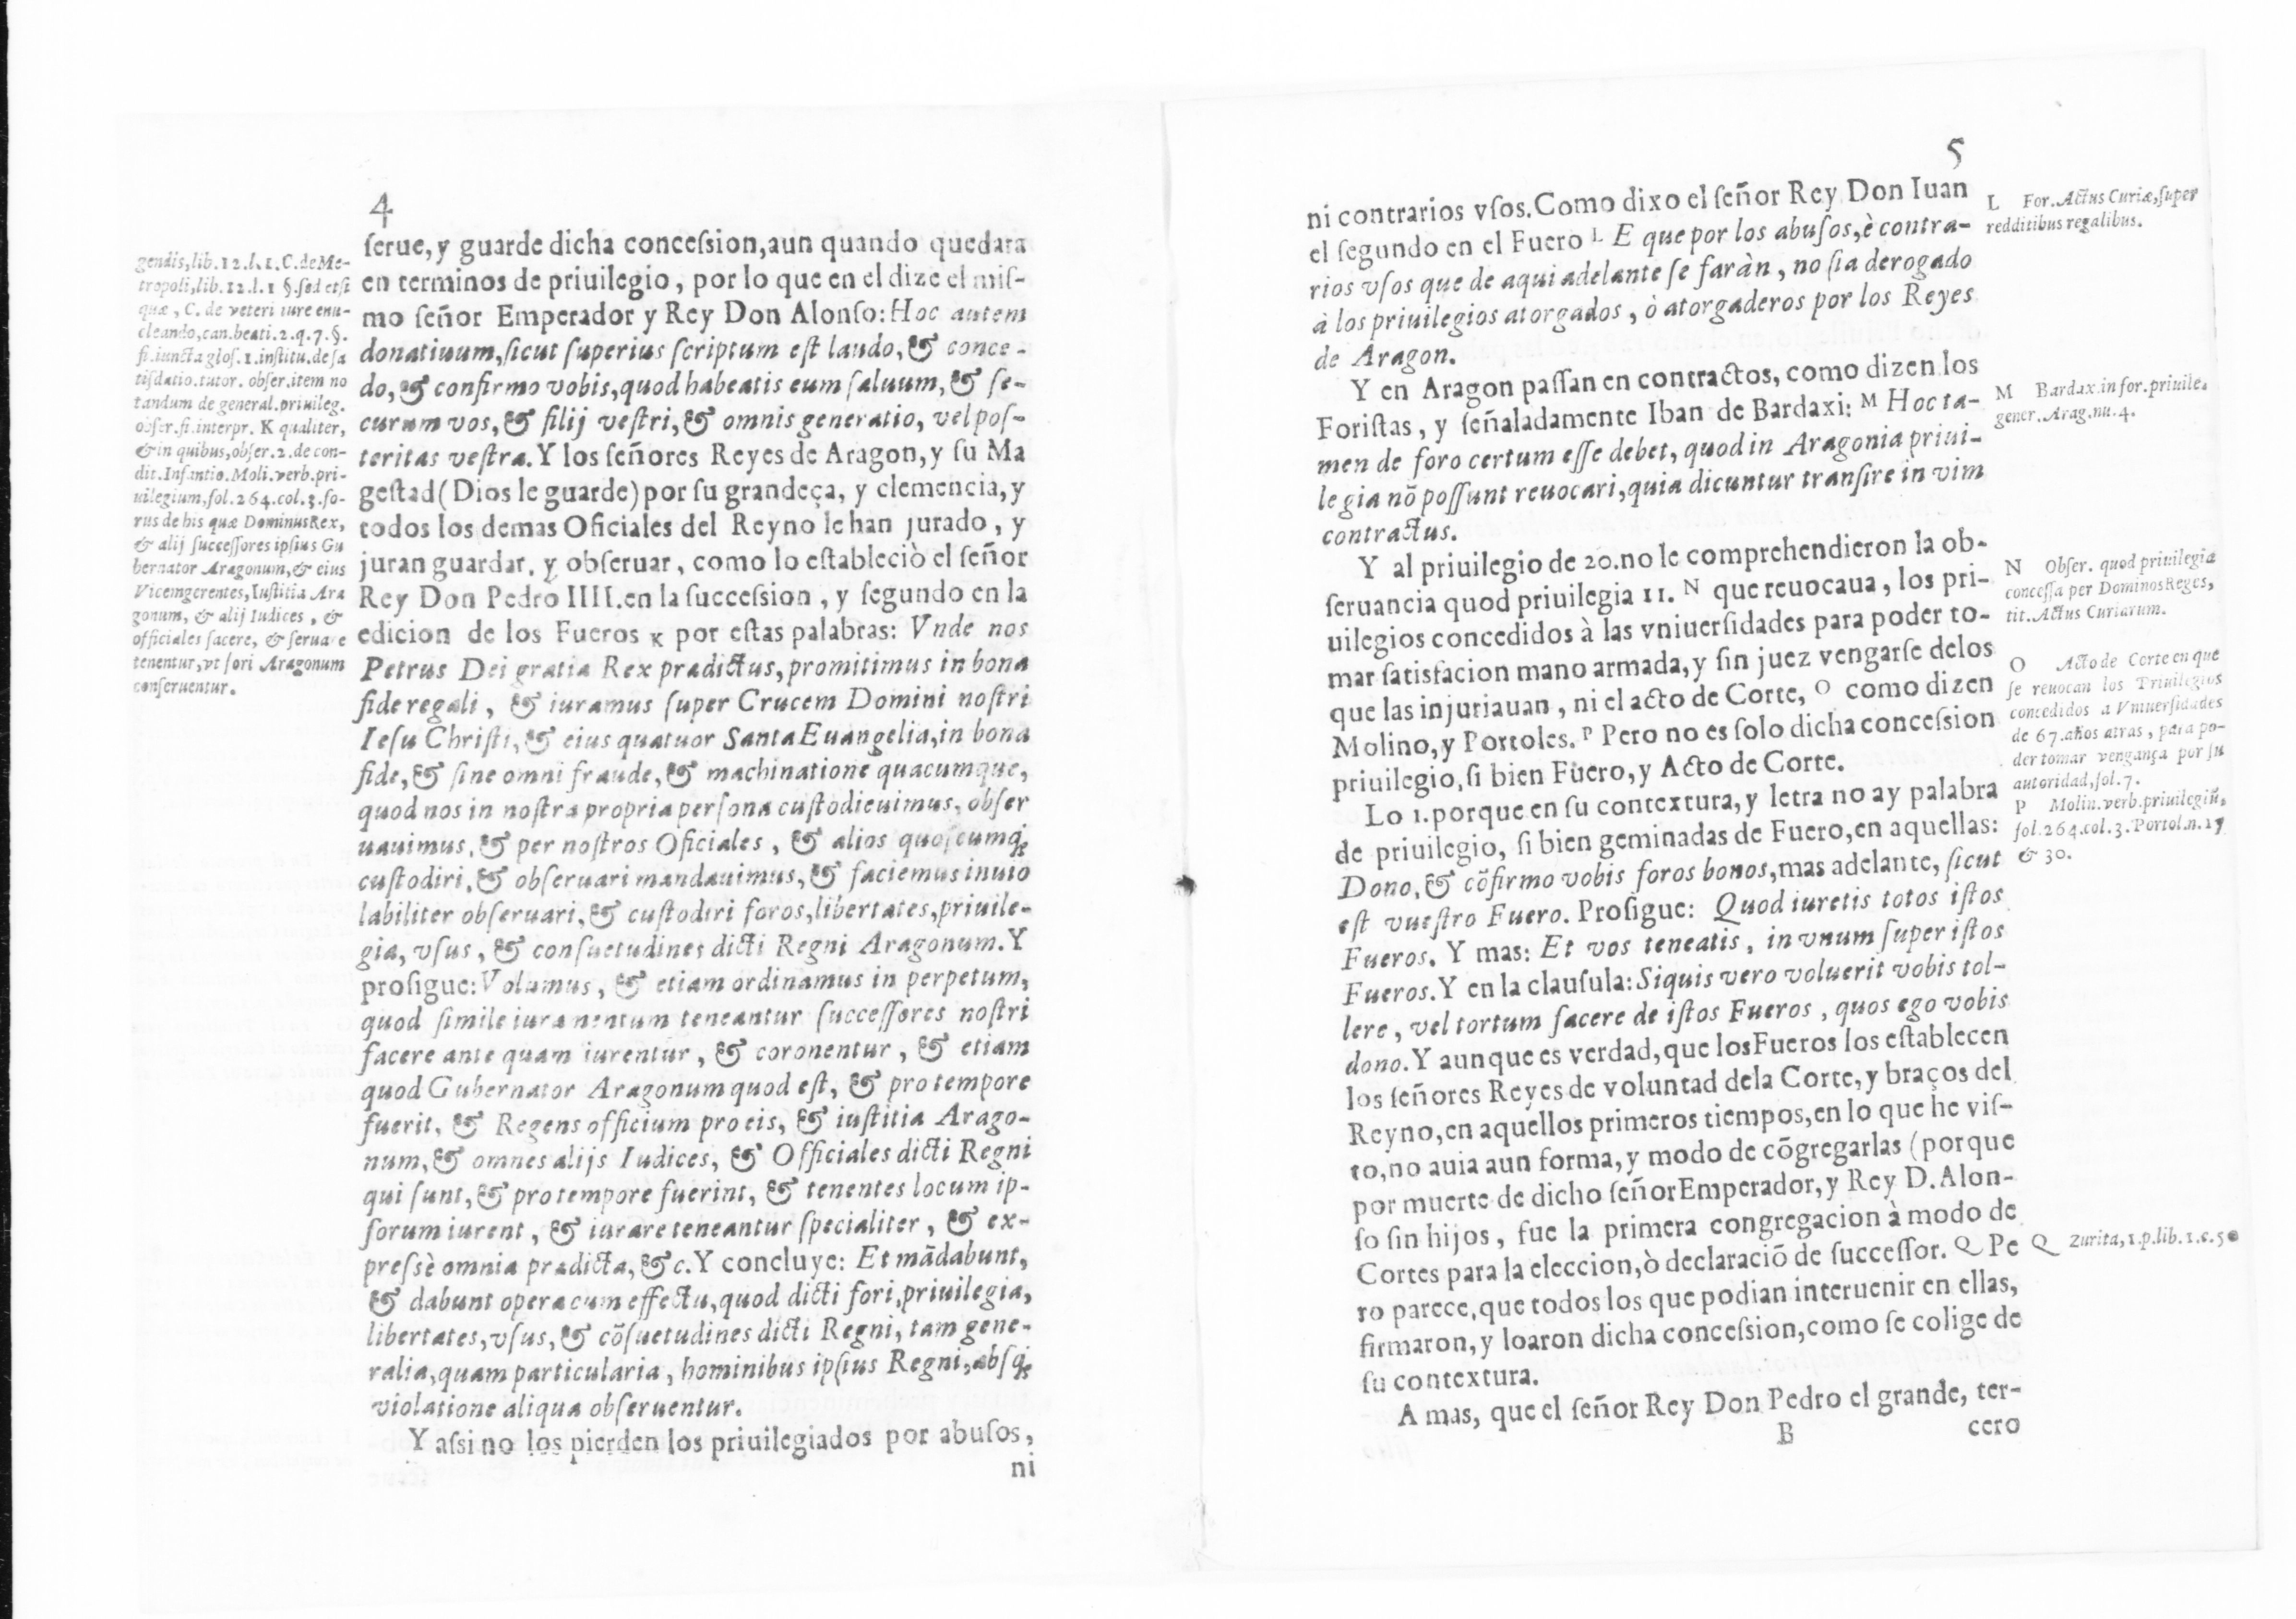 4
ſerue, y guarde dicha conceſsion, aun quando quedara
en terminos de priuilegio, por lo que en el dize el miſ-
mo ſeñor Emperador y Rey Don Alonſo: Hoc autem
donatiuum, ſicut ſuperius ſcriptum eſt laudo, & conce-
do, & confirmo vobis, quod habeatis eum ſaluum, & ſe-
curum vos, & filij veſtri, & omnis generatio, vel poſ-
teritas veſtra. Y los ſeñores Reyes de Aragon, y ſu Ma
geſtad (Dios le guarde) por ſu grandeça, y clemencia, y
todos los demas Oficiales del Reyno le han jurado, y
juran guardar, y obſeruar, como lo eſtableciò el ſeñor
Rey Don Pedro IIII. en la ſucceſsion, y ſegundo en la
edicion de los Fueros K por eſtas palabras: Vnde nos
Petrus Dei gratia Rex pradictus, promitimus in bona
fide regali, & iuramus ſuper Crucem Domini noſtri
Ieſu Chriſti, & eius quatuor Santa Euangelia, in bona
fide, & ſine omni fraude, & machinatione quacumque,
quod nos in noſtra propria perſona cuſtodieuimus, obſer
uauimus, & per noſtros Oficiales, & alios quoſcumq;
cuſtodiri, & obſeruari mandauimus, & faciemus inuio
labiliter obſeruari, & cuſtodiri foros, libertates, priuile-
gia, vſus, & conſuetudines dicti Regni Aragonum. Y
proſigue: Volumus, & etiam ordinamus in perpetum,
quod ſimile iuramentum teneantur ſucceſſores noſtri
facere ante quam iurentur, & coronentur, & etiam
quod Gubernator Aragonum quod eſt, & pro tempore
fuerit, & Regens officium pro eis, & iuſtitia Arago-
num, & omnes alijs Iudices, & Officiales dicti Regni
qui ſunt, & pro tempore fuerint, & tenentes locum ip-
ſorum iurent, & iurare teneantur ſpecialiter, & ex-
preſsè omnia pradicta, &c. Y concluye: Et mādabunt,
& dabunt opera cum effectu, quod dicti fori, priuilegia,
libertates, vſus, & cōſuetudines dicti Regni, tam gene-
ralia, quam particularia, hominibus ipſius Regni, abſq;
violatione aliqua obſeruentur.
Y aſsi no los pierden los priuilegiados por abuſos,
ni
gendis, lib. 12. l. 1. C. de Me-
tropoli, lib. 12. l. 1 §. ſed etſi
quæ, C. de veteri iure enu-
cleando, can. beati. 2. q. 7. §.
fi. iuncta gloſ. 1. inſtitu. de ſa
tiſdatio. tutor. obſer. item no
tandum de general. priuileg.
obſer. fi. interpr. K qualiter,
& in quibus, obſer. 2. de con-
dit. Infantio. Moli. verb. pri-
uilegium, fol. 264. col. 3. fo-
rus de his quæ Dominus Rex,
& alij ſucceſſores ipſius Gu
bernator Aragonum, & eius
Vicemgerentes, Iuſtitia Ara
gonum, & alij Iudices, &
officiales facere, & ſeruare
tenentur, vt fori Aragonum
conſeruentur.
5
ni contrarios vſos. Como dixo el ſeñor Rey Don Iuan
el ſegundo en el Fuero L E que por los abuſos, è contra-
rios vſos que de aqui adelante ſe faràn, no ſia derogado
à los priuilegios atorgados, ò atorgaderos por los Reyes
de Aragon.
Y en Aragon paſſan en contractos, como dizen los
Foriſtas, y ſeñaladamente Iban de Bardaxi: M Hoc ta-
men de foro certum eſſe debet, quod in Aragonia priui-
legia nō poſſunt reuocari, quia dicuntur tranſire in vim
contractus.
Y al priuilegio de 20. no le comprehendieron la ob-
ſeruancia quod priuilegia 11. N que reuocaua, los pri-
uilegios concedidos à las vniuerſidades para poder to-
mar ſatisfacion mano armada, y ſin juez vengarſe delos
que las injuriauan, ni el acto de Corte, O como dizen
Molino, y Portoles. P Pero no es ſolo dicha conceſsion
priuilegio, ſi bien Fuero, y Acto de Corte.
Lo 1. porque en ſu contextura, y letra no ay palabra
de priuilegio, ſi bien geminadas de Fuero, en aquellas:
Dono, & cōfirmo vobis foros bonos, mas adelante, ſicut
eſt vueſtro Fuero. Proſigue: Quod iuretis totos iſtos
Fueros. Y mas: Et vos teneatis, in vnum ſuper iſtos
Fueros. Y en la clauſula: Siquis vero voluerit vobis tol-
lere, vel tortum facere de iſtos Fueros, quos ego vobis
dono. Y aunque es verdad, que los Fueros los eſtablecen
los ſeñores Reyes de voluntad dela Corte, y braços del
Reyno, en aquellos primeros tiempos, en lo que he viſ-
to, no auia aun forma, y modo de cōgregarlas (porque
por muerte de dicho ſeñor Emperador, y Rey D. Alon-
ſo ſin hijos, fue la primera congregacion à modo de
Cortes para la eleccion, ò declaraciō de ſucceſſor. Q Pe
ro parece, que todos los que podian interuenir en ellas,
firmaron, y loaron dicha conceſsion, como ſe colige de
ſu contextura.
A mas, que el ſeñor Rey Don Pedro el grande, ter-
B cero
L For. Actus Curiæ, ſuper
redditibus regalibus.
M Bardax. in for. priuile.
gener. Arag. nu. 4.
N Obſer. quod priuilegia
conceſſa per Dominos Reges,
tit. Actus Curiarum.
O Acto de Corte en que
ſe reuocan los Priuilegios
concedidos a Vniuerſidades
de 67. años atras, para po-
der tomar vengança por ſu
autoridad, fol. 7.
P Molin. verb. priuilegiū,
fol. 264. col. 3. Portol. n. 17
& 30.
Q Zurita, 1. p. lib. 1. c. 5